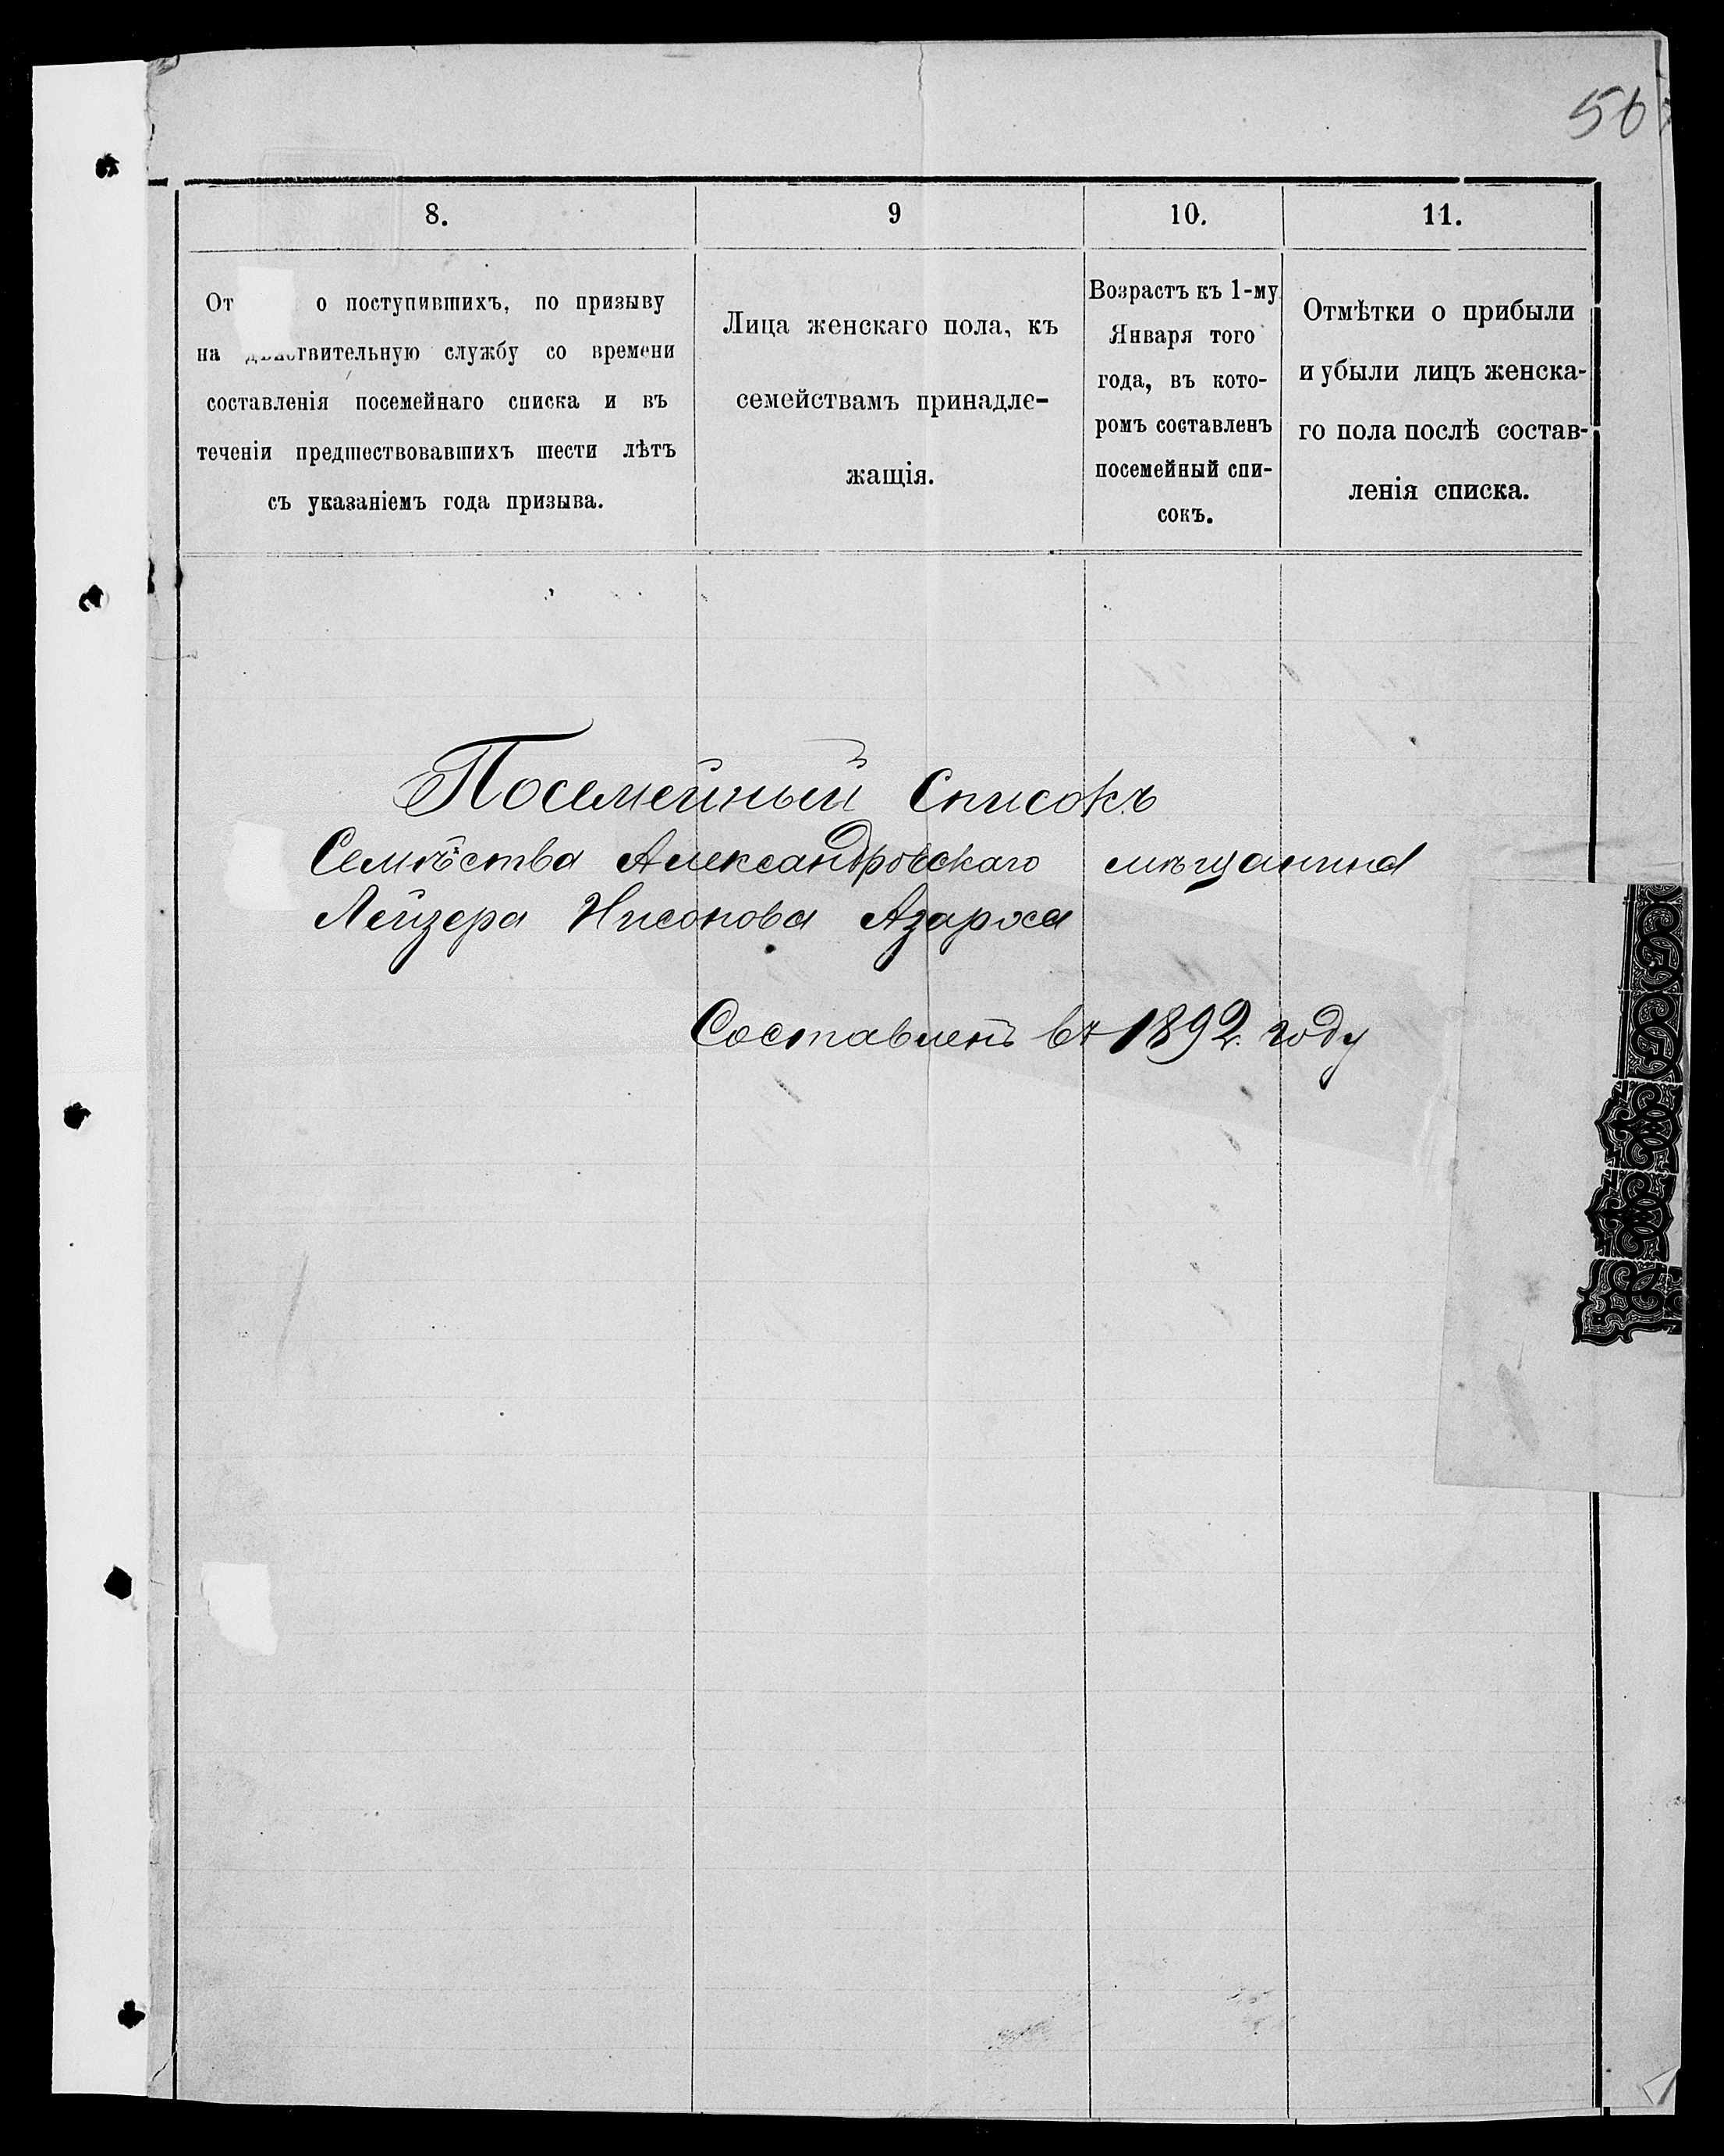 56
8.
От о поступившихъ, по призыву
на дѣйствительную службу со времени
составленія посемейнаго списка и въ
теченіи предшествовавшихъ шести лѣтъ
съ указаніемъ года призыва.
9
Лица женскаго пола, къ
семействамъ принадле-
жащія.
10.
Возрастъ къ 1-му
Января того
года, въ кото-
ромъ составленъ
посемейный спи-
сокъ.
11.
Отмѣтки о прибыли
и убыли лицъ женска-
го пола послѣ состав-
ленія списка.
Посемейный Списокъ
Семѣйства Александровскаго мѣщанина
Лейзера Нисонова Азароса
Составленъ въ 1892 году